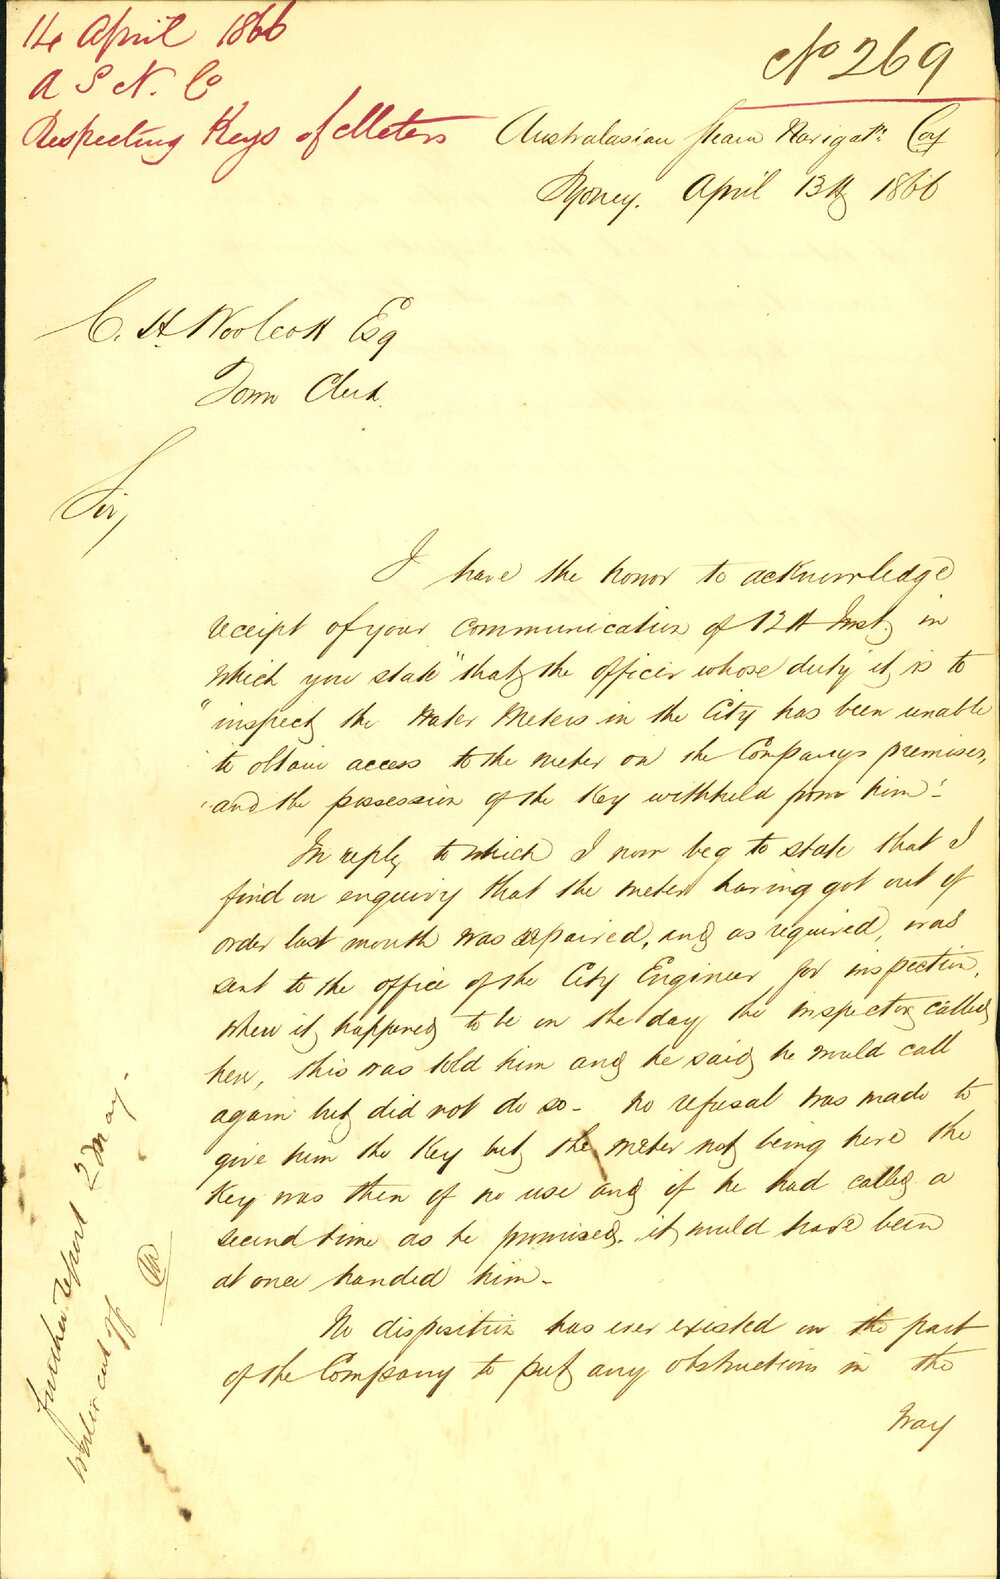 14 April 1866
A S N. Co
Respecting Keys of Meters
No 269
Australasian Steam Navigatn. Coy
Sydney. April 13th 1866
C. H. Woolcott Esq
Town Clerk.
Sir,
I have the honor to acknowledge
receipt of your communication of 12th Inst. in
which you state "that the officer whose duty it is to
"inspect the Water Meters in the City has been unable
"to obtain access to the meter on the Company's premises,
"and the possession of the Key withheld from him".
In reply to which I now beg to state that I
find on enquiry that the meter having got out of
order last month was repaired, and as required, was
sent to the office of the City Engineer for inspection,
where it happened to be on the day the inspector called
here, this was told him and he said he would call
again but did not do so - no refusal was made to
give him the Key but the meter not being here the
Key was then of no use and if he had called a
second time as he promised, it would have been
at once handed him -
No disposition has ever existed on the part
of the Company to put any obstructions in the
way
further report 2 May.
water cut off